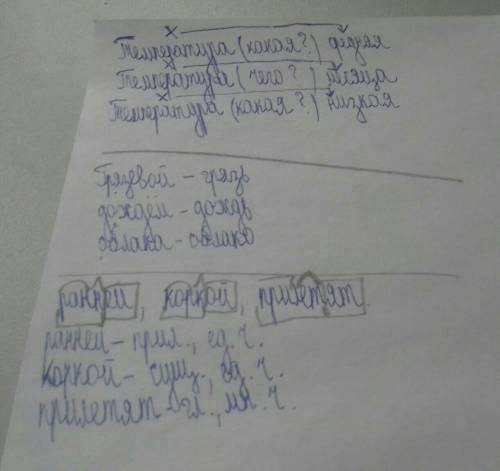 Температура (какая?) средняя
Температура (чего?) месяца
Температура (какая?) низкая
Грязевой - грязь
дождём - дождь
облака - облако
ранней, коркой, прилетят.
ранней - прил., ед. ч.
коркой - сущ., ед. ч.
прилетят - гл., мн. ч.